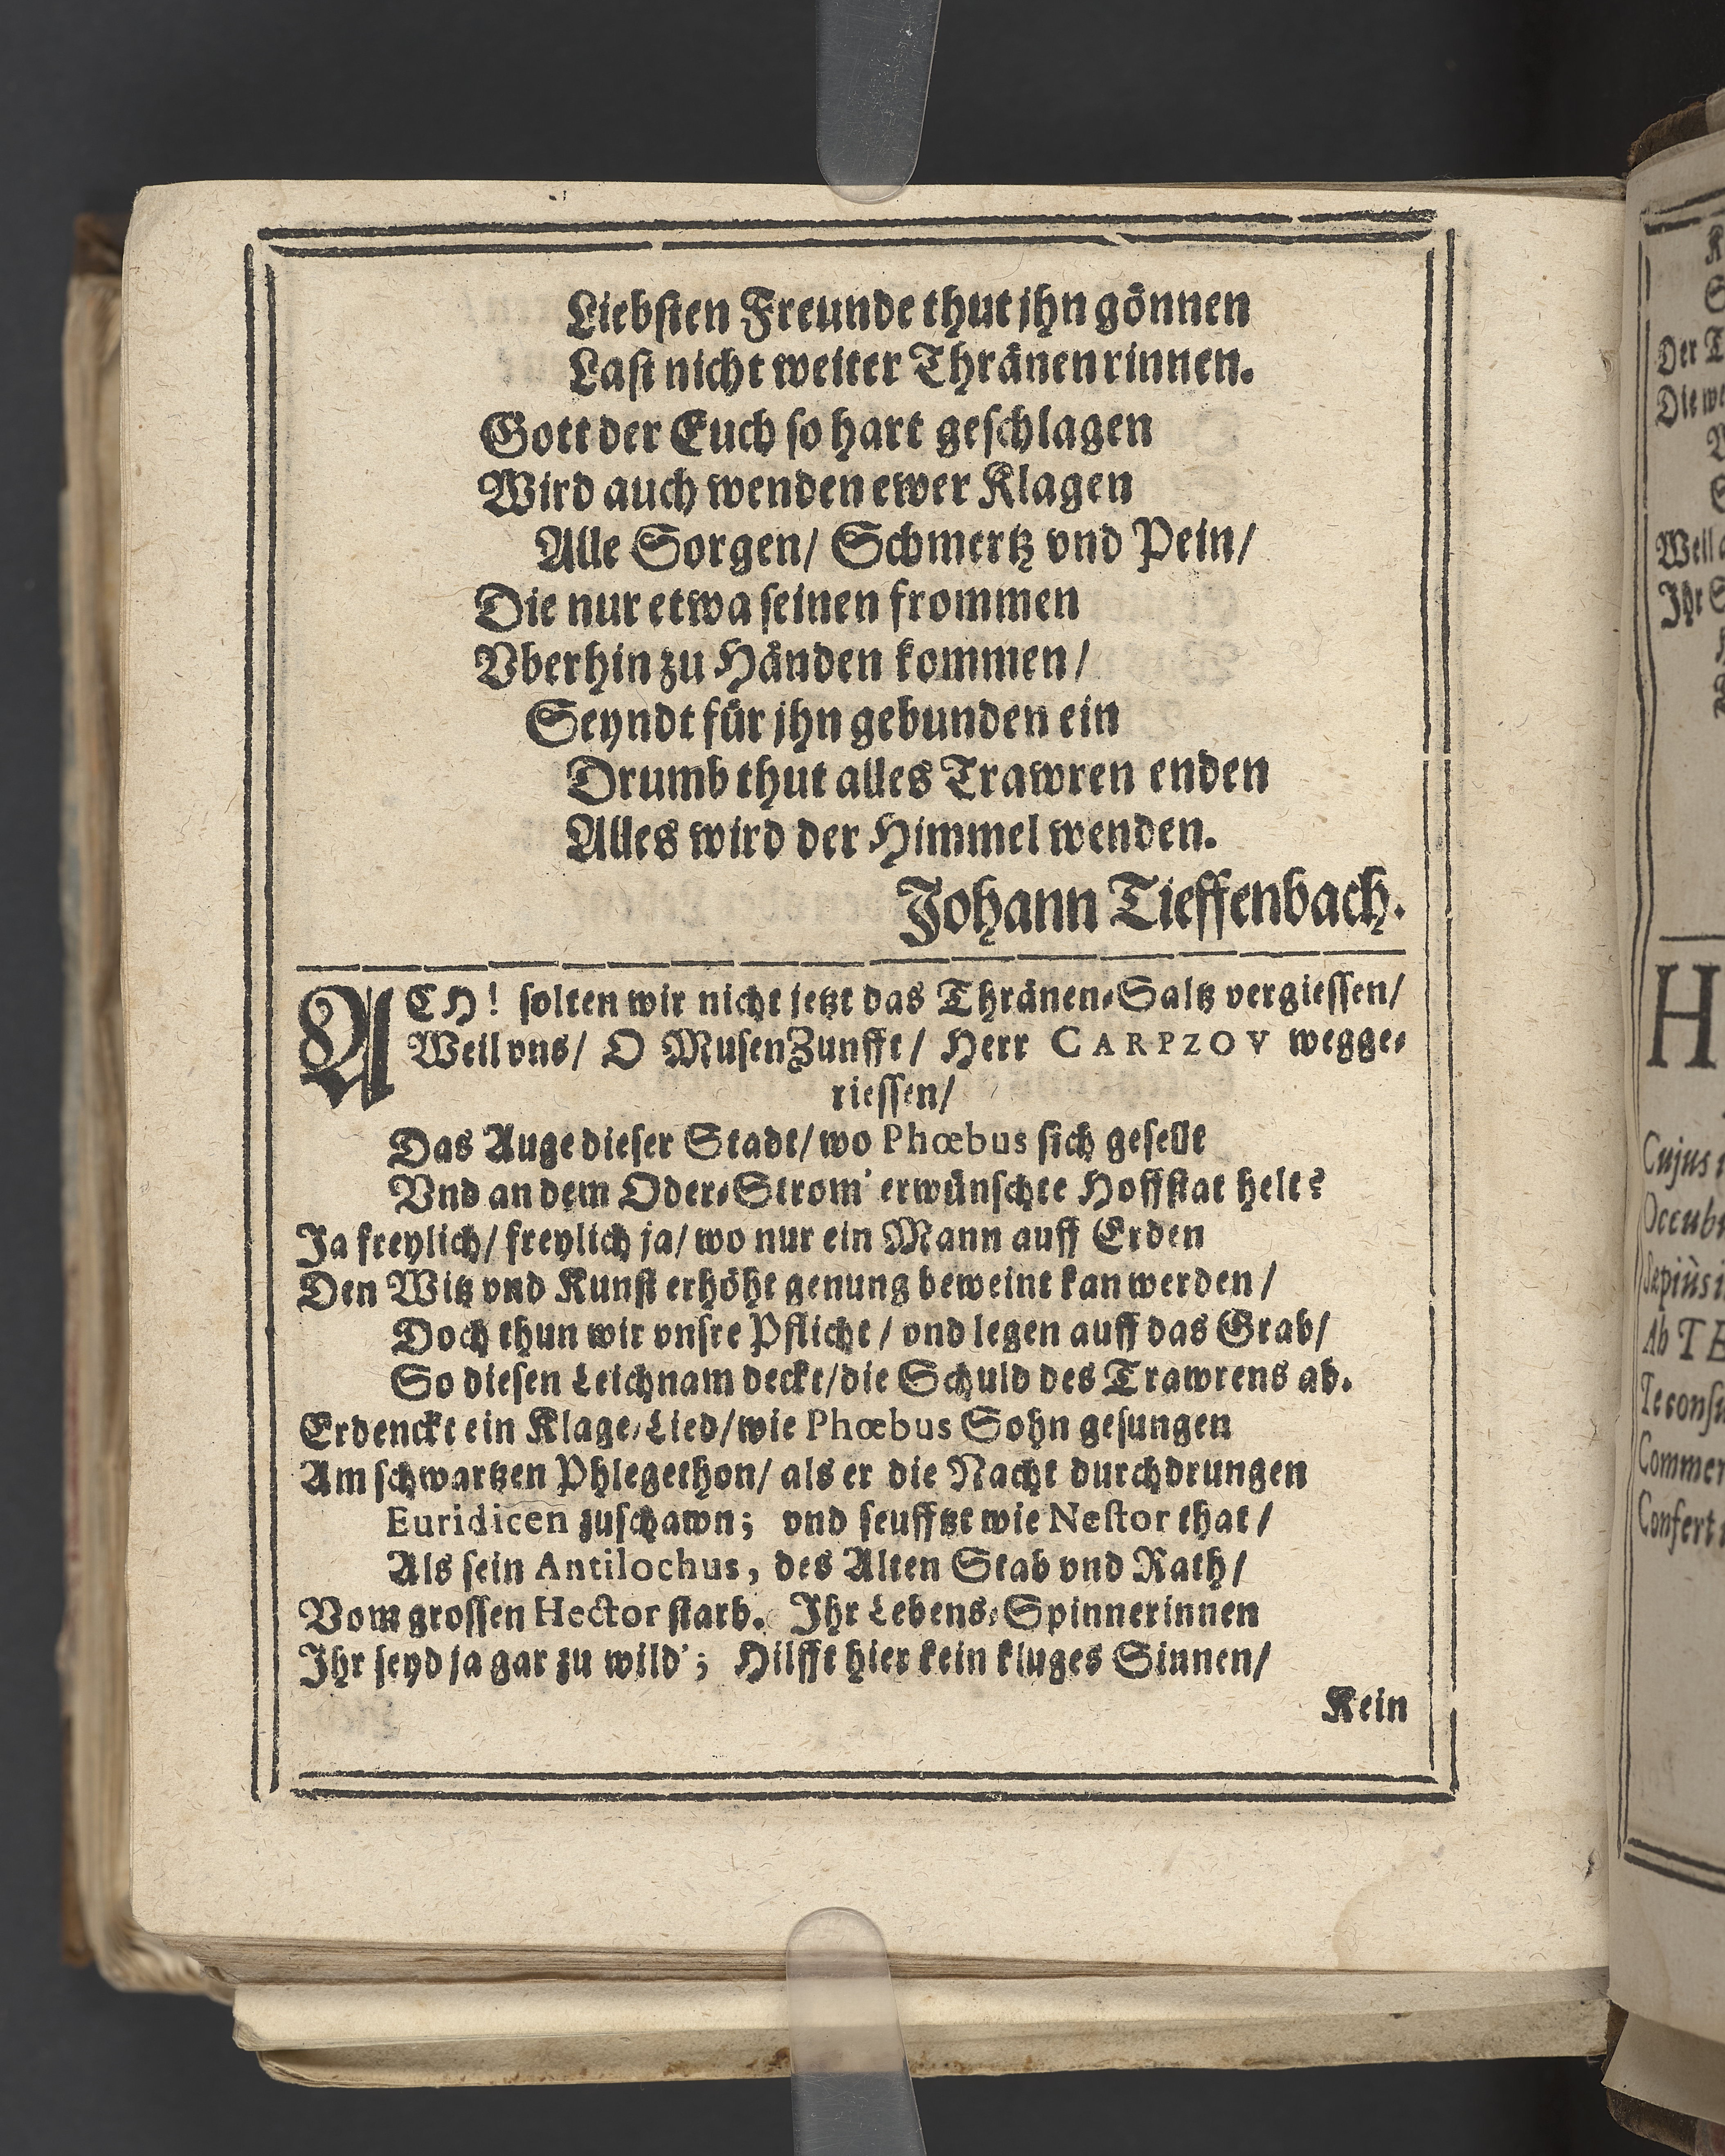 Liebsten Freunde thut jhn gönnen
Last nicht weiter Thränen rinnen.
Gott der Euch so hart geschlagen
Wird auch wenden ewer Klagen
Alle Sorgen/ Schmertz vnd Pein/
Die nur etwa seinen frommen
Vberhin zu Händen kommen/
Seyndt für jhn gebunden ein
Drumb thut alles Trawren enden
Alles wird der Himmel wenden.
Johann Tieffenbach.
ACH! solten wir nicht jetzt das Thränen-Saltz vergiessen/
Weil vns/ O MusenZunfft/ Herr CARPZOV wegge-
riessen/
Das Auge dieser Stadt/ wo Phœbus sich gesellt
Vnd an dem Oder-Strom' erwünschte Hoffstat helt?
Ja freylich/ freylich ja/ wo nur ein Mann auff Erden
Den Witz vnd Kunst erhöht genung beweint kan werden/
Doch thun wir vnsre Pflicht/ vnd legen auff das Grab/
So diesen Leichnam deckt/ die Schuld des Trawrens ab.
Erdenckt ein Klage-Lied/ wie Phœbus Sohn gesungen
Am schwartzen Phlegethon/ als er die Nacht durchdrungen
Euridicen zuschawn; vnd seufftzt wie Nestor that/
Als sein Antilochus, des Alten Stab vnd Rath/
Vom grossen Hector starb. Ihr Lebens-Spinnerinnen
Ihr seyd ja gar zu wild'; Hilfft hier kein kluges Sinnen/
Kein
Der
Die
Weil
Ihr
H
Cujus
Sepiùs
Ab TE